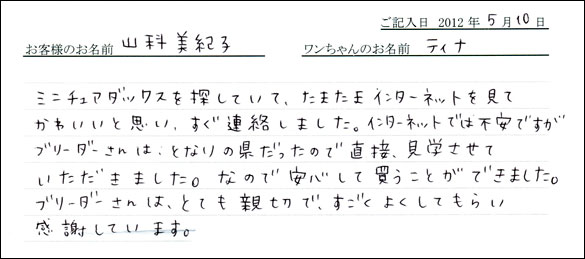 ご記入日 2012 年 5 月 10 日
お客様のお名前 山科美紀子 ワンちゃんのお名前 ティナ
ミニチュアダックスを探していて、たまたまインターネットを見て
かわいいと思い、すぐ連絡しました。インターネットでは不安ですが
ブリーダーさんは、となりの県だったので直接、見学させて
いただきました。なので安心して買うことができました。
ブリーダーさんは、とても親切で、すごくよくしてもらい
感謝しています。